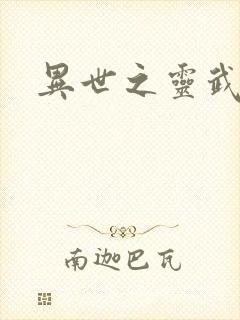 異世之靈武
南迦巴瓦